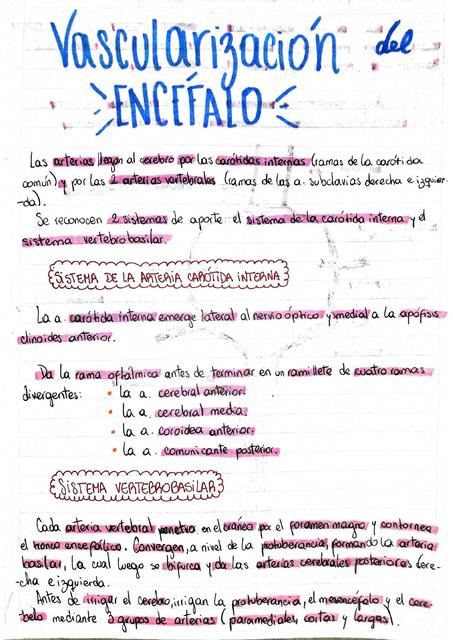 Vascularización del
ENCÉFALO
Las arterias llegan al cerebro por las carótidas internas (ramas de la carótida
común) y por las 2 arterias vertebrales (ramas de las a. subclavias derecha e izquier-
-da).
Se reconocen 2 sistemas de aporte: el sistema de la carótida interna y el
sistema vertebrobasilar.
SISTEMA DE LA ARTERIA CARÓTIDA INTERNA
La a. carótida interna emerge lateral al nervio óptico y medial a la apófisis
clinoides anterior.
Da la rama oftálmica antes de terminar en un ramillete de cuatro ramas
divergentes: • La a. cerebral anterior.
• La a. cerebral media.
• La a. coroidea anterior.
• La a. comunicante posterior.
SISTEMA VERTEBROBASILAR
Cada arteria vertebral penetra en el cráneo por el foramen magno y contornea
el tronco encefálico. Convergen, a nivel de la protuberancia, formando la arteria
basilar, la cual luego se bifurca y da las arterias cerebrales posteriores dere-
-cha e izquierda.
Antes de irrigar el cerebro, irrigan la protuberancia, el mesencéfalo y el cere-
belo mediante 3 grupos de arterias (paramediales, cortas y largas).